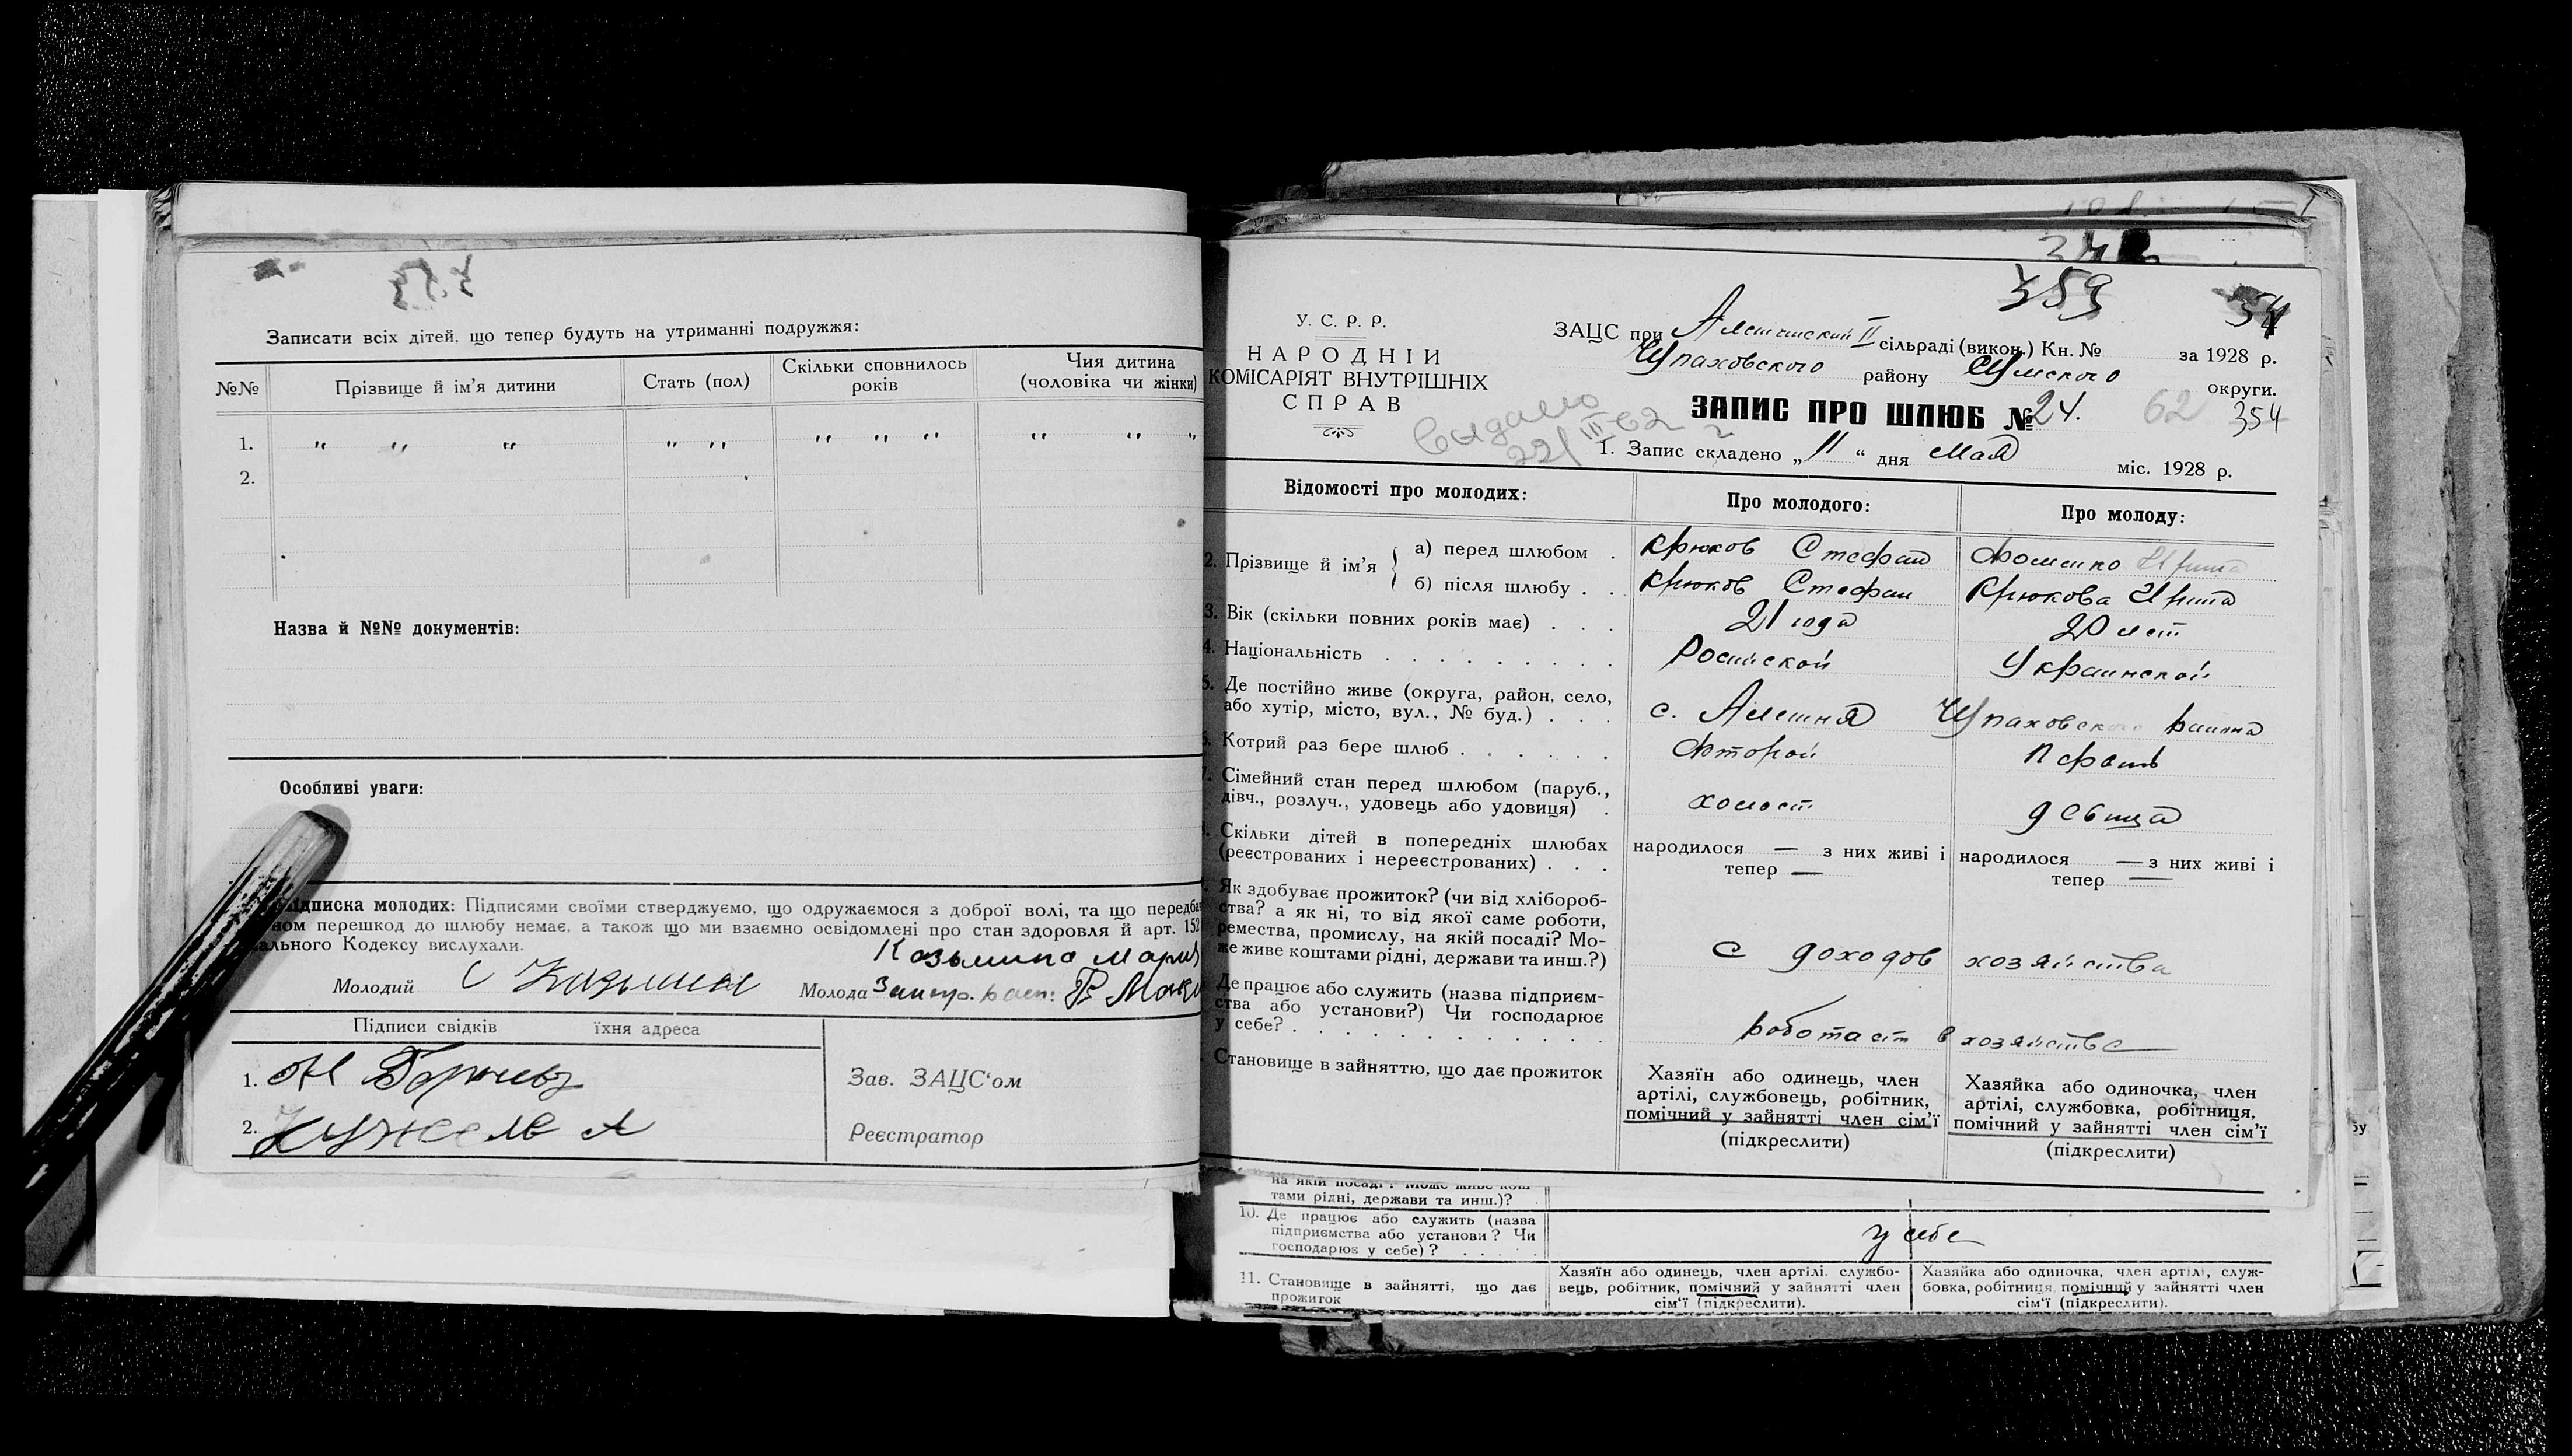 Записати всіх дітей, що тепер будуть на утриманні подружжя:
№№
Прізвище й ім'я дитини
Стать (пол)
Скільки сповнилось років
Чия дитина (чоловіка чи жінки)
1. " " " " " " " " " " "
2.
Назва й №№ документів:
Особливі уваги:
Підписка молодих: Підписями своїми стверджуємо, що одружаємося з доброї волі, та що передба
ном перешкод до шлюбу немає, а також що ми взаємно освідомлені про стан здоров'я й арт. 152
ального Кодексу вислухали.
Козьмина Мария
Молодий С Козьмин Молода
Підписи свідків їхня адреса
1.
2.
Зав. ЗАЦС'ом
Реєстратор
359
54
У. С. Р. Р.
НАРОДНІЙ
КОМІСАРІЯТ ВНУТРІШНІХ
СПРАВ
ЗАЦС при Алешинский II сільраді (викон.) Кн. № за 1928 р.
Чупаховского району Сумского округи.
ЗАПИС ПРО ШЛЮБ № 24. 62 354
Выдано
22/III-62
1. Запис складено „ 11 “ дня Мая міс. 1928 р.
Відомості про молодих:
Про молодого:
Про молоду:
2. Прізвище й ім'я
а) перед шлюбом . Крюков Стефан Фоменко Ирина
б) після шлюбу . . Крюков Стефан Крюкова Ирина
3. Вік (скільки повних років має) . . . 21 года 20 лет
4. Національність Росийской Украинской
5. Де постійно живе (округа, район, село,
або хутір, місто, вул., № буд.) . . . с. Алешня Чупаховского района
Котрий раз бере шлюб . . . . . . Фторой Перфый
Сімейний стан перед шлюбом (паруб.,
дівч., розлуч., удовець або удовиця) . холост девица
Скільки дітей в попередніх шлюбах
(реєстрованих і нереєстрованих) . . .
народилося — з них живі і
тепер —
народилося — з них живі і
тепер —
Як здобуває прожиток? (чи від хлібороб-
ства? а як ні, то від якої саме роботи,
ремества, промислу, на якій посаді? Мо-
же живе коштами рідні, держави та инш.?)
С доходов хозяйства
Де працює або служить (назва підприєм-
ства або установи?) Чи господарює
у себе?
роботает в хозяйстве
Становище в зайняттю, що дає прожиток
Хазяїн або одинець, член
артілі, службовець, робітник,
помічний у зайнятті член сім'ї
(підкреслити)
Хазяйка або одиночка, член
артілі, службовка, робітниця,
помічний у зайнятті член сім'ї
(підкреслити)
на якій посаді? Може живе кош-
тами рідні, держави та инш.)?
10. Де працює або служить (назва
підприємства або установи? Чи
господарює у себе)?
у себе
11. Становище в зайнятті, що дає
прожиток
Хазяїн або одинець, член артілі, службо-
вець, робітник, помічний у зайнятті член
сім'ї (підкреслити).
Хазяйка або одиночка, член артілі, служ-
бовка, робітниця, помічний у зайнятті член
сім'ї (підкреслити).